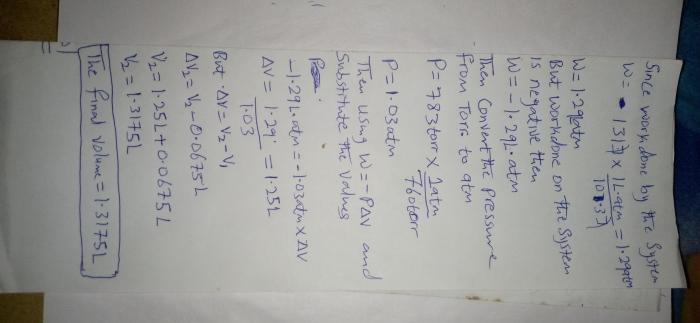 Since workdone by the System
W = 131J × 1L-atm / 101.3J = 1.29atm
W = 1.29atm
But workdone on the System
is negative then
W = -1.29L.atm
Then Convert the Pressure
from Torr to atm
P = 783torr × 1atm / 760torr
P = 1.03atm
Then using W = -PΔV and
Substitute the values
-1.29L.atm = -1.03atm × ΔV
ΔV = 1.29 / 1.03 = 1.25L
But ΔV = V2 - V1
ΔV2 = V2 - 0.0675L
V2 = 1.25L + 0.0675L
V2 = 1.3175L
The final volume = 1.3175L